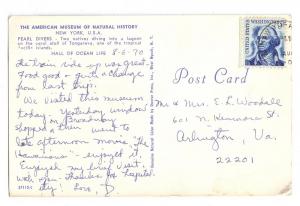 THE AMERICAN MUSEUM OF NATURAL HISTORY
NEW YORK, U.S.A.
PEARL DIVERS - Two natives diving into a lagoon
on the coral atoll of Tongareva, one of the tropical
Pacific Islands.
HALL OF OCEAN LIFE 8-6-70
The train ride up was great
Food good & quite a change
from last trip.
We visited this museum
today. Yesterday window
shopped on Broadway
then went to
late afternoon movie, The
Hawaiians - enjoyed it
Enjoyed my brief visit,
Thanks for hospital
ity! Love,
37110-C
Post Card
WASHINGTON
Mr & Mrs. E. L. Woodall
601 N. Kenmore St.
Arlington, Va.
22201